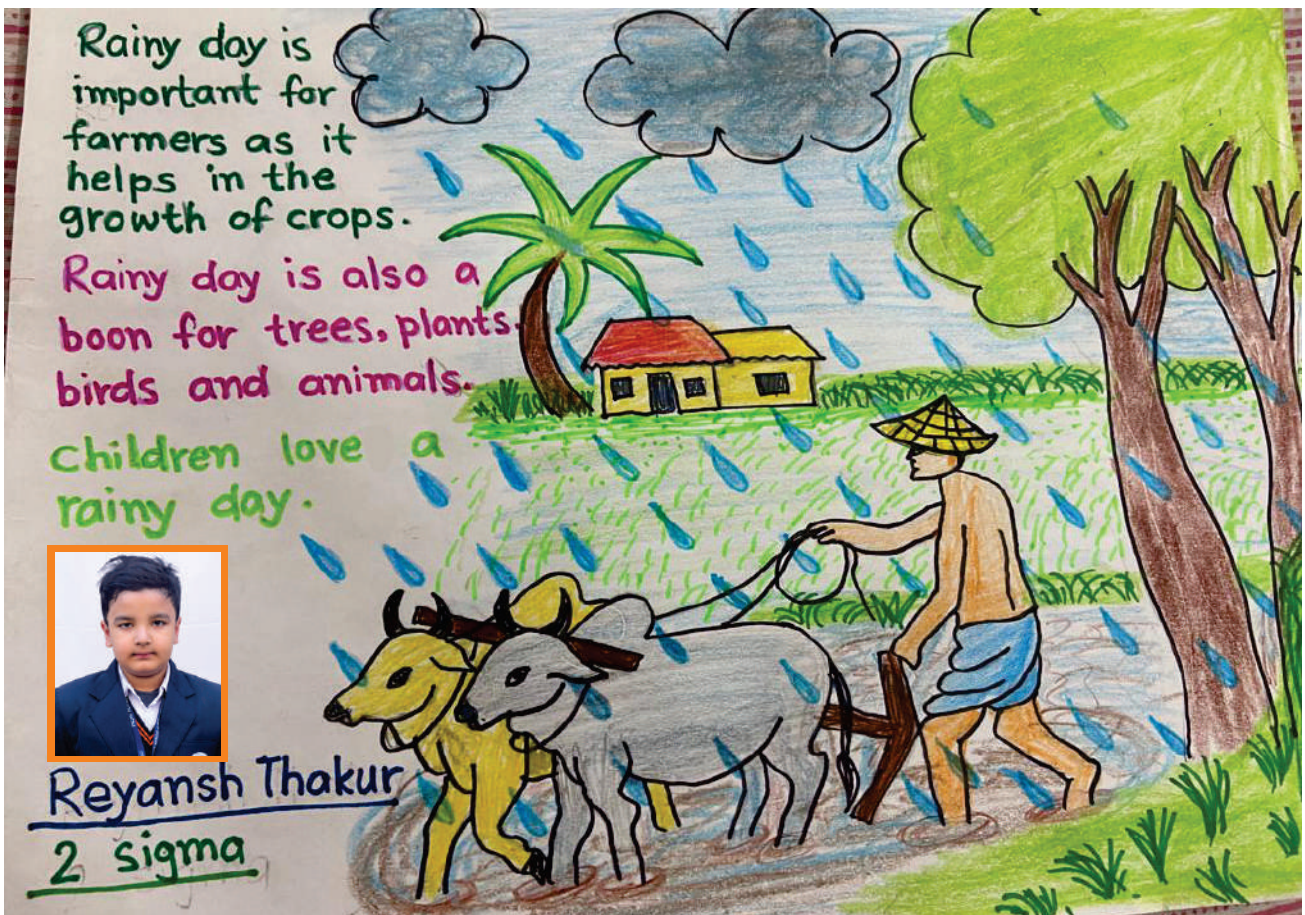 Rainy day is
important for
farmers as it
helps in the
growth of crops.
Rainy day is also a
boon for trees, plants,
birds and animals.
Children love a
rainy day.
Reyansh Thakur
2 sigma